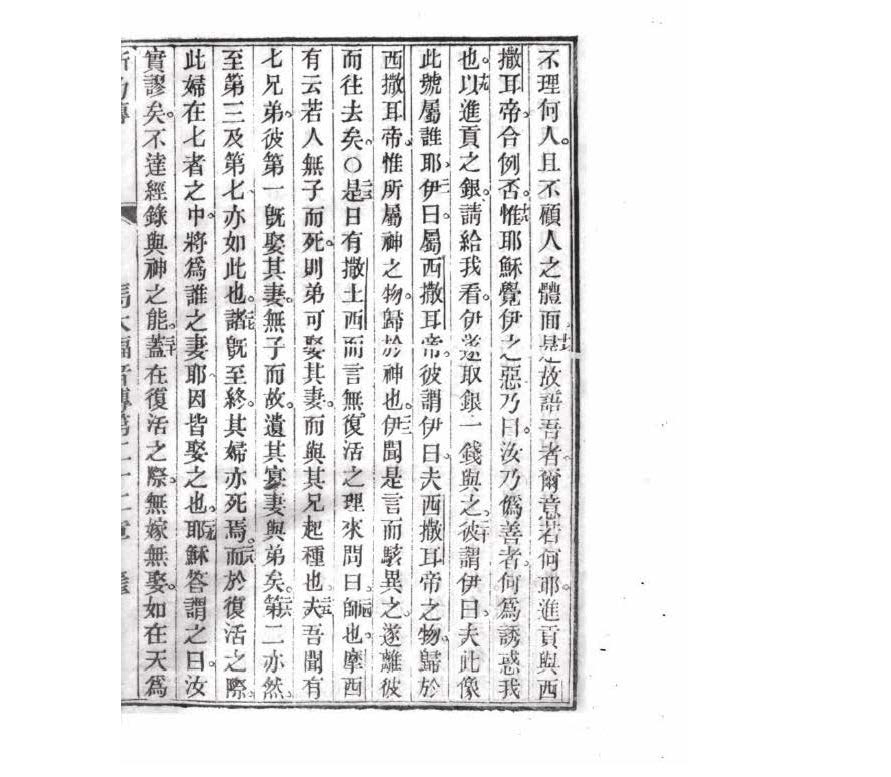 不理何人。且不顧人之體面。十七是故語吾者爾意若何。耶進貢與西
撒耳帝。合例否。十八惟耶穌覺伊之惡乃曰。汝乃僞善者。何爲誘惑我
也。十九以進貢之銀。請給我看。伊遂取銀一錢與之。二十彼謂伊曰。夫此像
此號屬誰耶。二一伊曰。屬西撒耳帝。彼謂伊曰。夫西撒耳帝之物。歸於
西撒耳帝。惟所屬神之物。歸於神也。二二伊聞是言而駭異之。遂離彼
而往去矣。〇二三是日有撒土西而言無復活之理來問曰。二四師也。摩西
有云若人無子而死。則弟可娶其妻。而與其兄起種也。二五夫吾聞有
七兄弟。彼第一旣娶其妻。無子而故。遺其寡妻與弟矣。二六第二亦然。
至第三及第七亦如此也。二七諸旣至終。其婦亦死焉。二八而於復活之際。
此婦在七者之中。將爲誰之妻耶。因皆娶之也。二九耶穌答謂之曰。汝
實謬矣。不達經錄與神之能。三十蓋在復活之際。無嫁無娶。如在天爲
馬太福音傳第二十二章